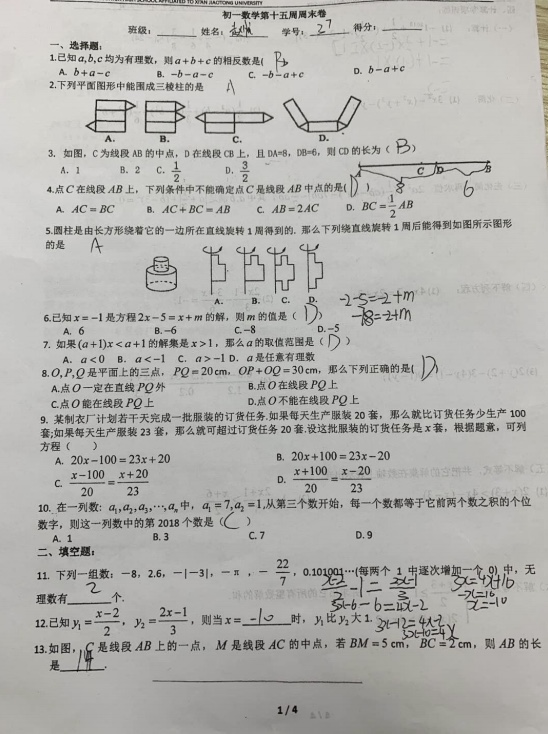 SCHOOL AFFILIATED TO XI'AN JIAOTONG UNIVERSITY
初一数学第十五周周末卷
班级： 姓名： 学号： 27 得分：
一、选择题：
1.已知a,b,c均为有理数，则a+b+c的相反数是( B
A. b+a−c B. −b−a−c C. −b−a+c D. b−a+c
2.下列平面图形中能围成三棱柱的是 A
A. B. C. D.
3. 如图，C为线段AB的中点，D在线段CB上，且DA=8，DB=6，则CD的长为（ B ）
A. 1 B. 2 C. 1/2 D. 3/2
A C D B
8 6
4.点C在线段AB上，下列条件中不能确定点C是线段AB中点的是( D )
A. AC=BC B. AC+BC=AB C. AB=2AC D. BC=1/2 AB
5.圆柱是由长方形绕着它的一边所在直线旋转1周得到的. 那么下列绕直线旋转1周后能得到如图所示图形
的是 A
A. B. C. D.
6.已知x=−1是方程2x−5=x+m的解，则m的值是（ D ）
-2-5=-2+m
A. 6 B.−6 C.−8 D.−5
7. 如果(a+1)x<a+1的解集是x>1，那么a的取值范围是（ D ）
A. a<0 B. a<−1 C. a>−1 D. a是任意有理数
8.O,P,Q是平面上的三点，PQ=20cm，OP+OQ=30cm，那么下列正确的是( D )
A.点O一定在直线PQ外 B.点O在线段PQ上
C.点O能在线段PQ上 D.点O不能在线段PQ上
9. 某制衣厂计划若干天完成一批服装的订货任务.如果每天生产服装20套，那么就比订货任务少生产100
套;如果每天生产服装23套，那么就可超过订货任务20套.设这批服装的订货任务是x套，根据题意，可列
方程（ ）
A. 20x−100=23x+20 B. 20x+100=23x−20
C. (x−100)/20=(x+20)/23 D. (x+100)/20=(x−20)/23
10. 在一列数: a₁,a₂,a₃,⋯,aₙ中，a₁=7,a₂=1,从第三个数开始，每一个数都等于它前两个数之积的个位
数字，则这一列数中的第2018个数是( C )
A. 1 B. 3 C. 7 D. 9
二、填空题：
11. 下列一组数：−8，2.6，−|−3|，−π，−22/7，0.101001⋯(每两个1中逐次增加一个0)中，无
理数有 2 个.
12.已知y₁=(x−2)/2，y₂=(2x−1)/3，则当x= -10 时，y₁比y₂大1.
3x-6-6=4x-2
3x=4x+10
-x=10
x=-10
3x-12=4x-2
13.如图，C是线段AB上的一点，M是线段AC的中点，若BM=5cm，BC=2cm，则AB的长
是
1 / 4